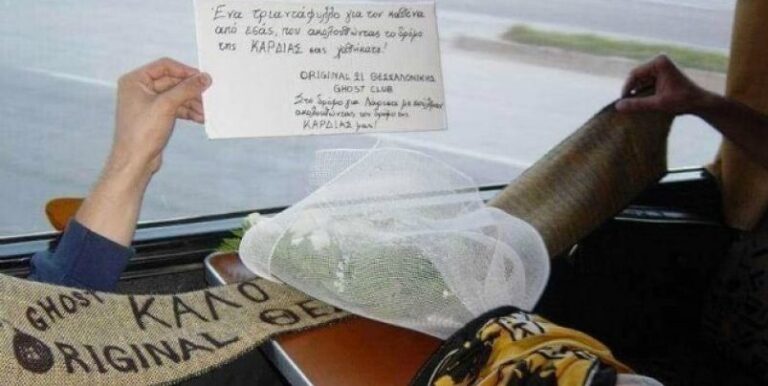 Ένα τριαντάφυλλο για τον καθένα
από εσάς, που ακολουθώντας το δρόμο
της ΚΑΡΔΙΑΣ σας χαθήκατε!
ORIGINAL 21 ΘΕΣΣΑΛΟΝΙΚΗΣ
GHOST CLUB
Στο δρόμο για Λάρισα με
ακολουθώντας τον δρόμο της
ΚΑΡΔΙΑΣ μας!
GHOST
ΚΑΛΟ
ORIGINAL ΘΕΣ